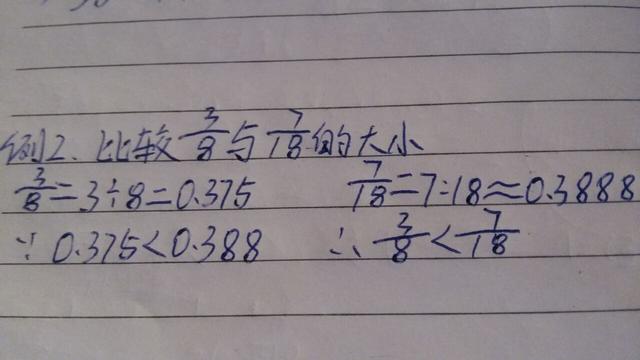 例2.比较3/8与7/18的大小
3/8=3÷8=0.375 7/18=7÷18≈0.3888
∵ 0.375<0.388 ∴ 3/8<7/18